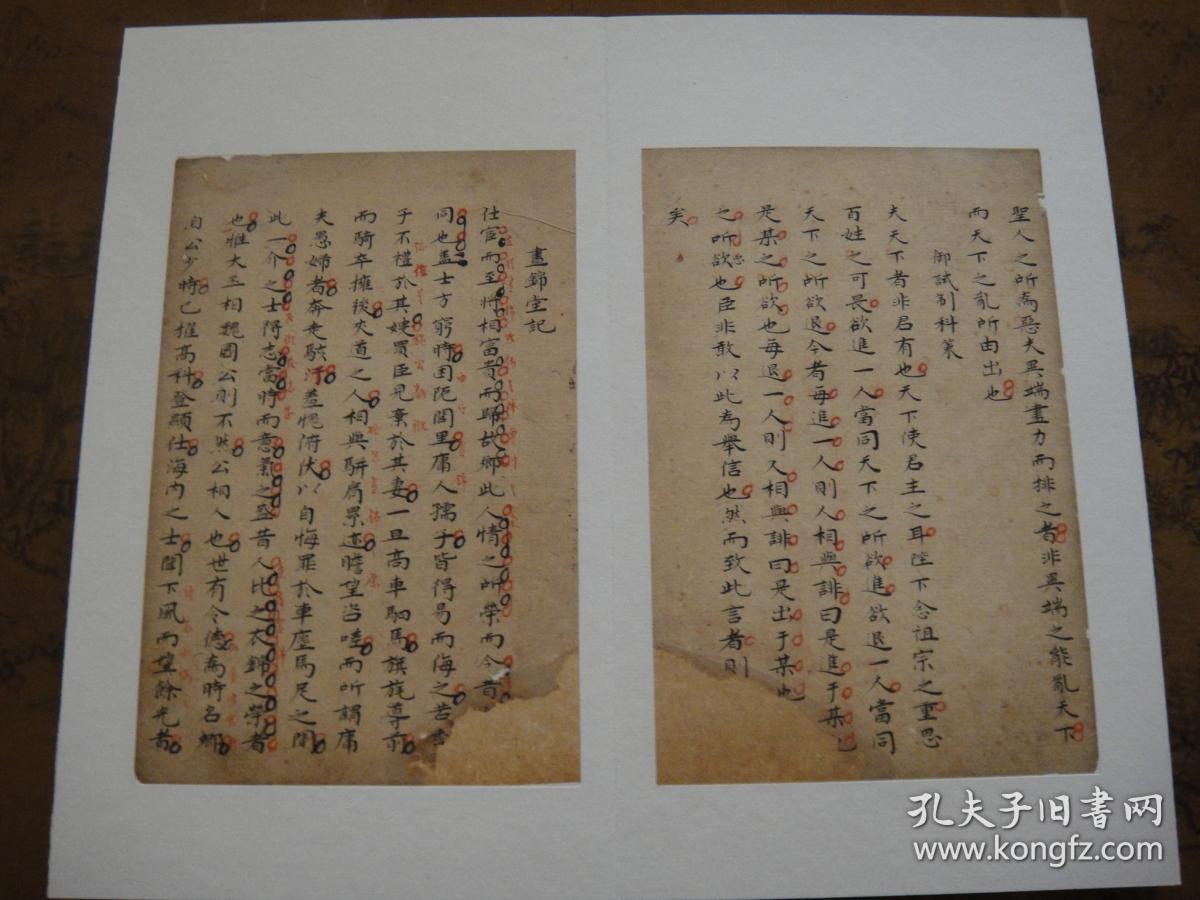 聖人之所為惡夫異端盡力而排之者非異端之能亂天下
而天下之亂所由出也
御試制科策
夫天下者非君有也天下使君主之耳陛下念祖宗之重思
百姓之可畏欲進一人當同天下之所欲進欲退一人當同
天下之所欲退今者每進一人則人相與誹曰是進于某也
是某之所欲也每退一人則又相與誹曰是出于某也
之所惡也臣非敢以此為舉信也然而致此言者則
矣
晝錦堂記
仕宦而至將相富貴而歸故鄉此人情之所榮而今昔
同也蓋士方窮時困阨閭里庸人孺子皆得易而侮之若季
子不禮於其嫂買臣見棄於其妻一旦高車駟馬旗旄導前
而騎卒擁後夾道之人相與駢肩累迹瞻望咨嗟而所謂庸
夫愚婦者奔走駭汗羞愧俯伏以自悔罪於車塵馬足之間
此一介之士得志當時而意氣之盛昔人比之衣錦之榮者
也惟大丞相魏國公則不然公相人也世有令德為時名卿
自公少時已擢高科登顯仕海內之士聞下風而望餘光者
孔夫子旧书网
www.kongfz.com